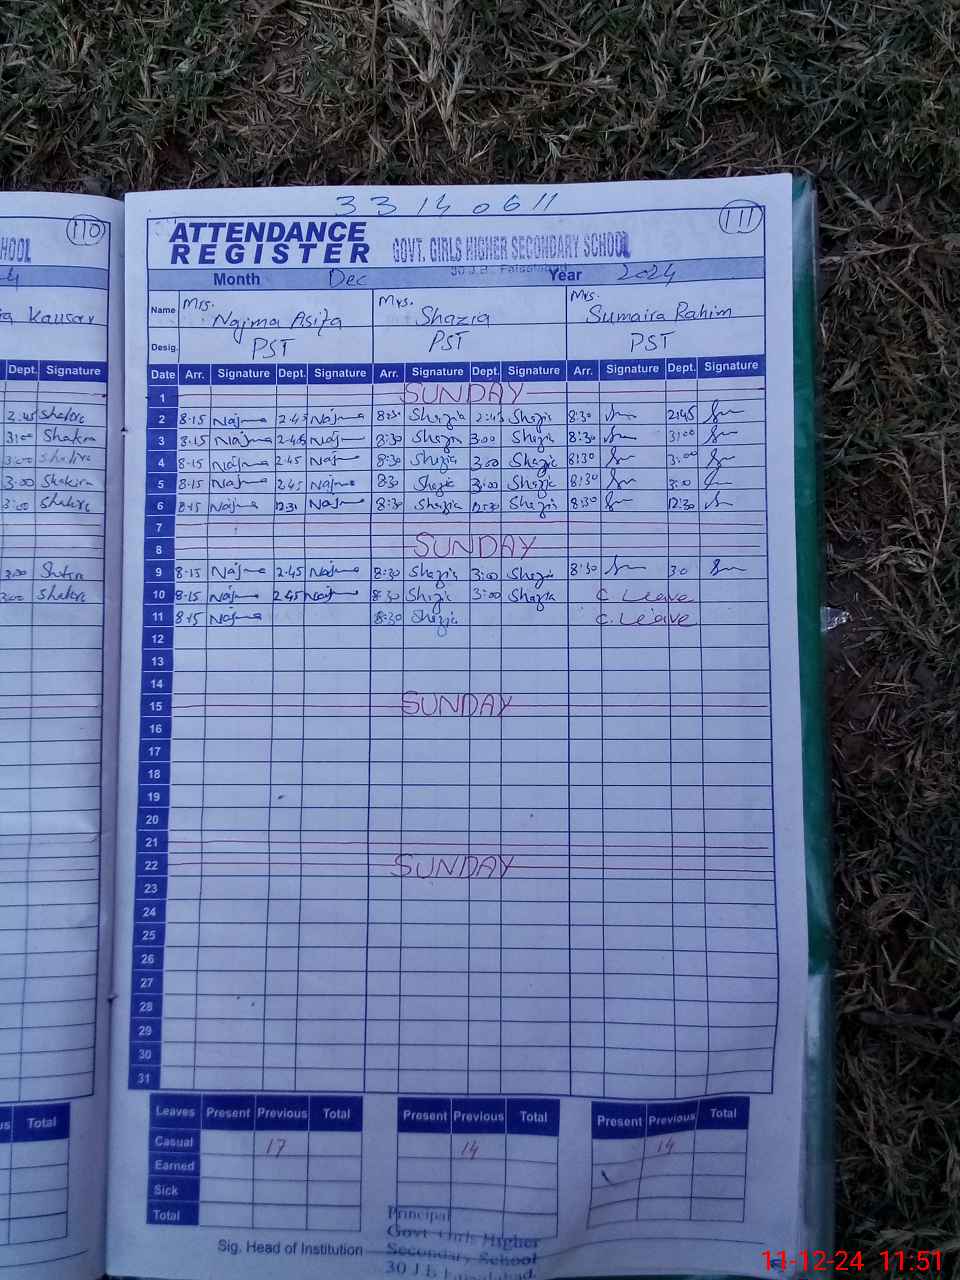 33140611
110
111
HOOL
ATTENDANCE
REGISTER
GOVT. GIRLS HIGHER SECONDARY SCHOOL
30 J.B., Faisalabad
Month Dec Year 2024
Kausar
Name Mrs. Najma Asifa Mrs. Shazia Mrs. Sumaira Rahim
Desig. PST PST PST
Dept. Signature
Date Arr. Signature Dept. Signature Arr. Signature Dept. Signature Arr. Signature Dept. Signature
1 SUNDAY
2.45 Shakira
2 8-15 Najma 2-45 Najma 8:30 Shazia 2:45 Shazia 8:30 2:45
3:00 Shakira
3 8-15 Najma 2-45 Najma 8:30 Shazia 3:00 Shazia 8:30 3:00
3:00 Shakira
4 8-15 Najma 2-45 Najma 8:30 Shazia 3:00 Shazia 8:30 3:00
3:00 Shakira
5 8-15 Najma 2-45 Najma 8:30 Shazia 3:00 Shazia 8:30 3:00
3:00 Shakira
6 8-15 Najma 12.31 Najma 8:30 Shazia 12:30 Shazia 8:30 12:30
7
8 SUNDAY
3:00 Shakira
9 8-15 Najma 2-45 Najma 8:30 Shazia 3:00 Shazia 8:30 3:0
3:00 Shakira
10 8-15 Najma 2-45 Najma 8:30 Shazia 3:00 Shazia C. Leave
11 8-15 Najma 8:30 Shazia C. Leave
12
13
14
15 SUNDAY
16
17
18
19
20
21
22 SUNDAY
23
24
25
26
27
28
29
30
31
Total
Leaves Present Previous Total Present Previous Total Present Previous Total
Casual 17 14 14
Earned
Sick
Total
Sig. Head of Institution
Principal
Govt Girls Higher
Secondary School
30 J B Faisalabad.
11-12-24 11:51